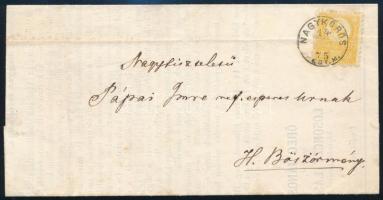 NAGYKŐRÖS
75
Nagytiszteletű
Pápai Imre ref. esperes Urnak
H. Böszörmény